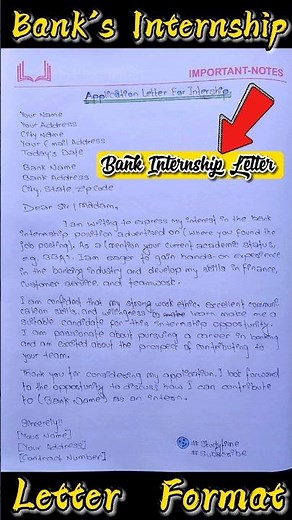 Bank's Internship
IMPORTANT-NOTES
Application Letter For Intership
Your Name
Your Address
City Name
Your Email Address
Today's Date
Bank Internship Letter
Bank Name
Bank Address
City, State, Zip Code
Dear Sir | Madam,
I am writing to express my interest in the bank
internship position advertised on (where you found the
job posting). As a (mention your current academic status,
e.g. BBA). I am eager to gain hands-on experience
in the banking industry and develop my skills in finance,
customer service, and teamwork.
I am confident that my strong work ethic, excellent communi-
cation skills, and willingness to learn make me a
suitable candidate for this internship opportunity.
I am passionate about pursuing a career in banking
and am excited about the prospect of contributing to
your team.
Thank you for considering my application. I look forward
to the opportunity to discuss how I can contribute
to (Bank Name) as an intern.
Sincerely,
[Your Name]
[Your Address]
[Contract Number]
#Studytime
Letter Format